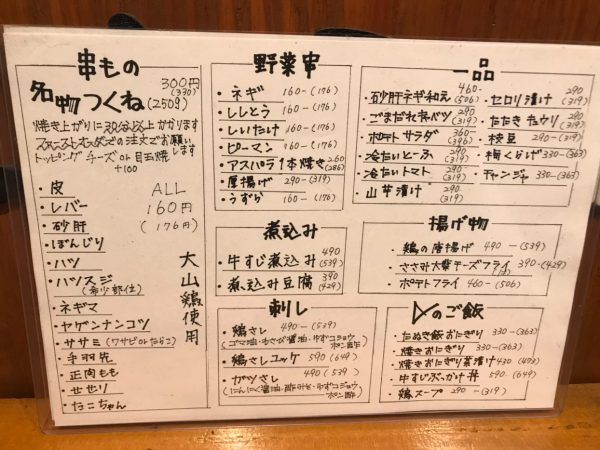 串もの
名物つくね
300円
(330)
(250g)
焼き上がりに30分以上かかります
スタートorラストの注文でお願いします
トッピング チーズor目玉焼
+100
・皮 ALL
・レバー 160円
・砂肝 (176円)
・ぼんじり
・ハツ
・ハツスジ
(希少部位)
・ネギマ
・ヤゲンナンコツ
・ササミ(ワサビorたらこ)
・手羽先
・正肉もも
・せせり
・たこちゃん
大山鶏使用
野菜串
・ネギ 160-(176)
・ししとう 160-(176)
・しいたけ 160-(176)
・ピーマン 160-(176)
・アスパラ1本焼き 260
(286)
・厚揚げ 290-(319)
・うずら 160-(176)
煮込み
・牛すじ煮込み 490
(539)
・煮込み豆腐 390
(429)
刺し
・鶏さし 490-(539)
(ゴマ油・わさび醤油・ゆずコショウ・ポン酢)
・鶏さしユッケ 590(649)
・ガツさし 490(539)
(にんにく醤油・酢みそ・ゆずコショウ・ポン酢)
一品
・砂肝ネギ和え 460-
(506)
・ごまだれキャベツ 290
(319)
・ポテトサラダ 360
(396)
・冷たいとーふ 290
(319)
・冷たいトマト 290
(319)
・山芋漬け 290
(319)
・セロリ漬け 290
(319)
・たたきキュウリ 290
(319)
・枝豆 290-(319)
・梅くらげ 330-(363)
・チャンジャ 330-(363)
揚げ物
・鶏の唐揚げ 490-(539)
・ささみ大葉チーズフライ 390-(429)
・ポテトフライ 460-(506)
〆のご飯
・たぬき飯おにぎり 330-(363)
・焼きおにぎり 330-(363)
・焼きおにぎり茶漬け 430(473)
・牛すじぶっかけ丼 590(649)
・鶏スープ 290-(319)